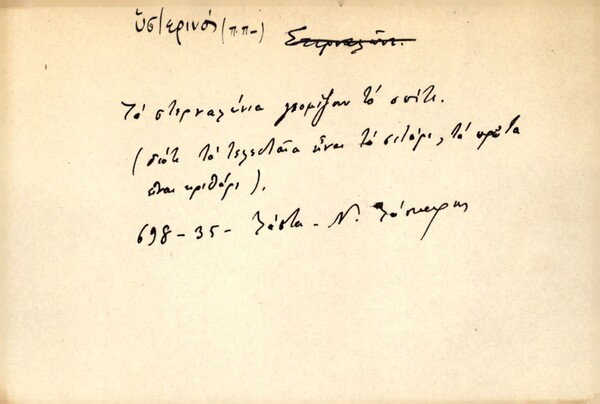 ὑστερινός (π.π-) Στερναλώνι.
Τὰ στερναλώνια γεομίζουν τὸ σπίτι.
(διότι τὰ τελευταῖα εἶναι τὸ σιτάρι, τὰ πρῶτα
εἶναι κριθάρι).
698-35- Τάστα - Ν.